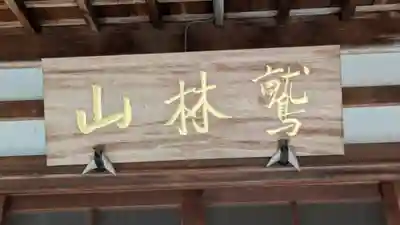 鷲林山